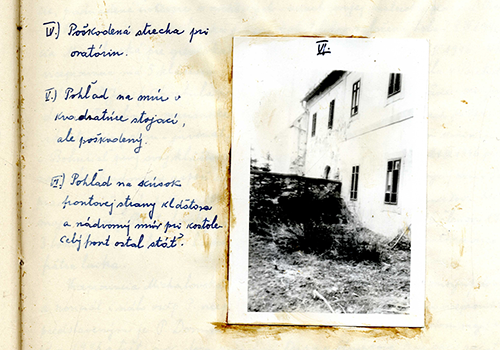 IV.) Poškodená strecha pri
oratóriu.
V.) Pohľad na múr v
kvadratúre stojací,
ale poškodený.
VI.) Pohľad na skúsok
frontovej strany kláštora
a nádvorný múr pri kostole
celý front ostal stáť.
VI.